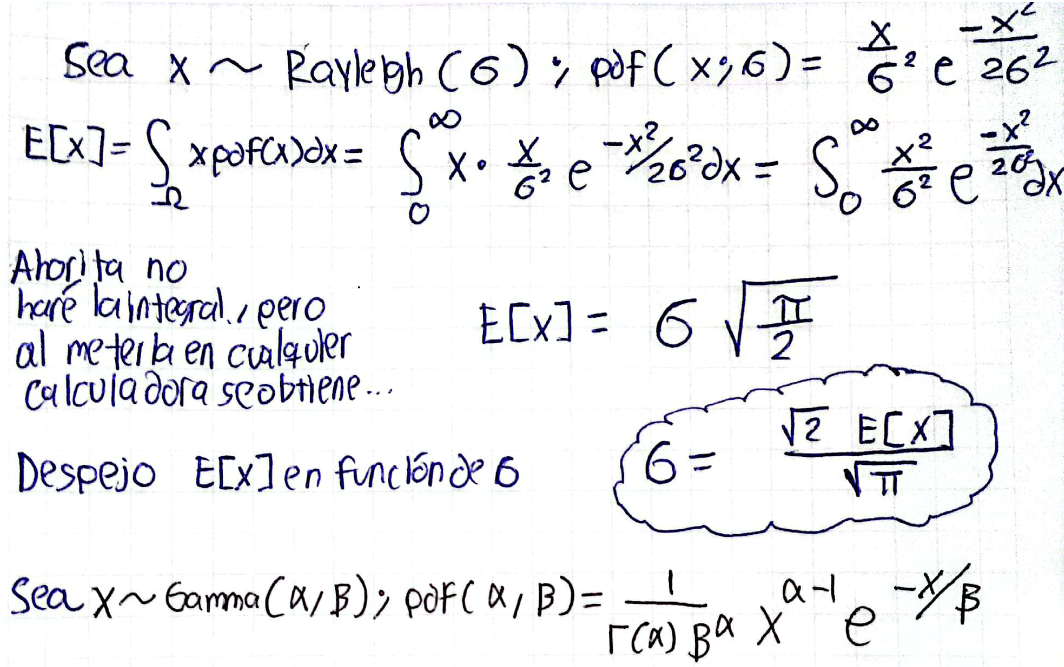 Sea x ~ Rayleigh (σ) ; pdf(x;σ) = x/σ² e^(-x²/2σ²)
E[x] = ∫_Ω x pdf(x)∂x = ∫_0^∞ x · x/σ² e^(-x²/2σ²) ∂x = ∫_0^∞ x²/σ² e^(-x²/2σ²) ∂x
Ahorita no
haré la integral, pero
al meterla en cualquier
calculadora se obtiene...
E[x] = σ √(π/2)
Despejo E[x] en función de σ
σ = √2 E[x] / √π
Sea X ~ Gamma(α,β); pdf(α,β) = 1/(Γ(α) β^α) x^(α-1) e^(-x/β)